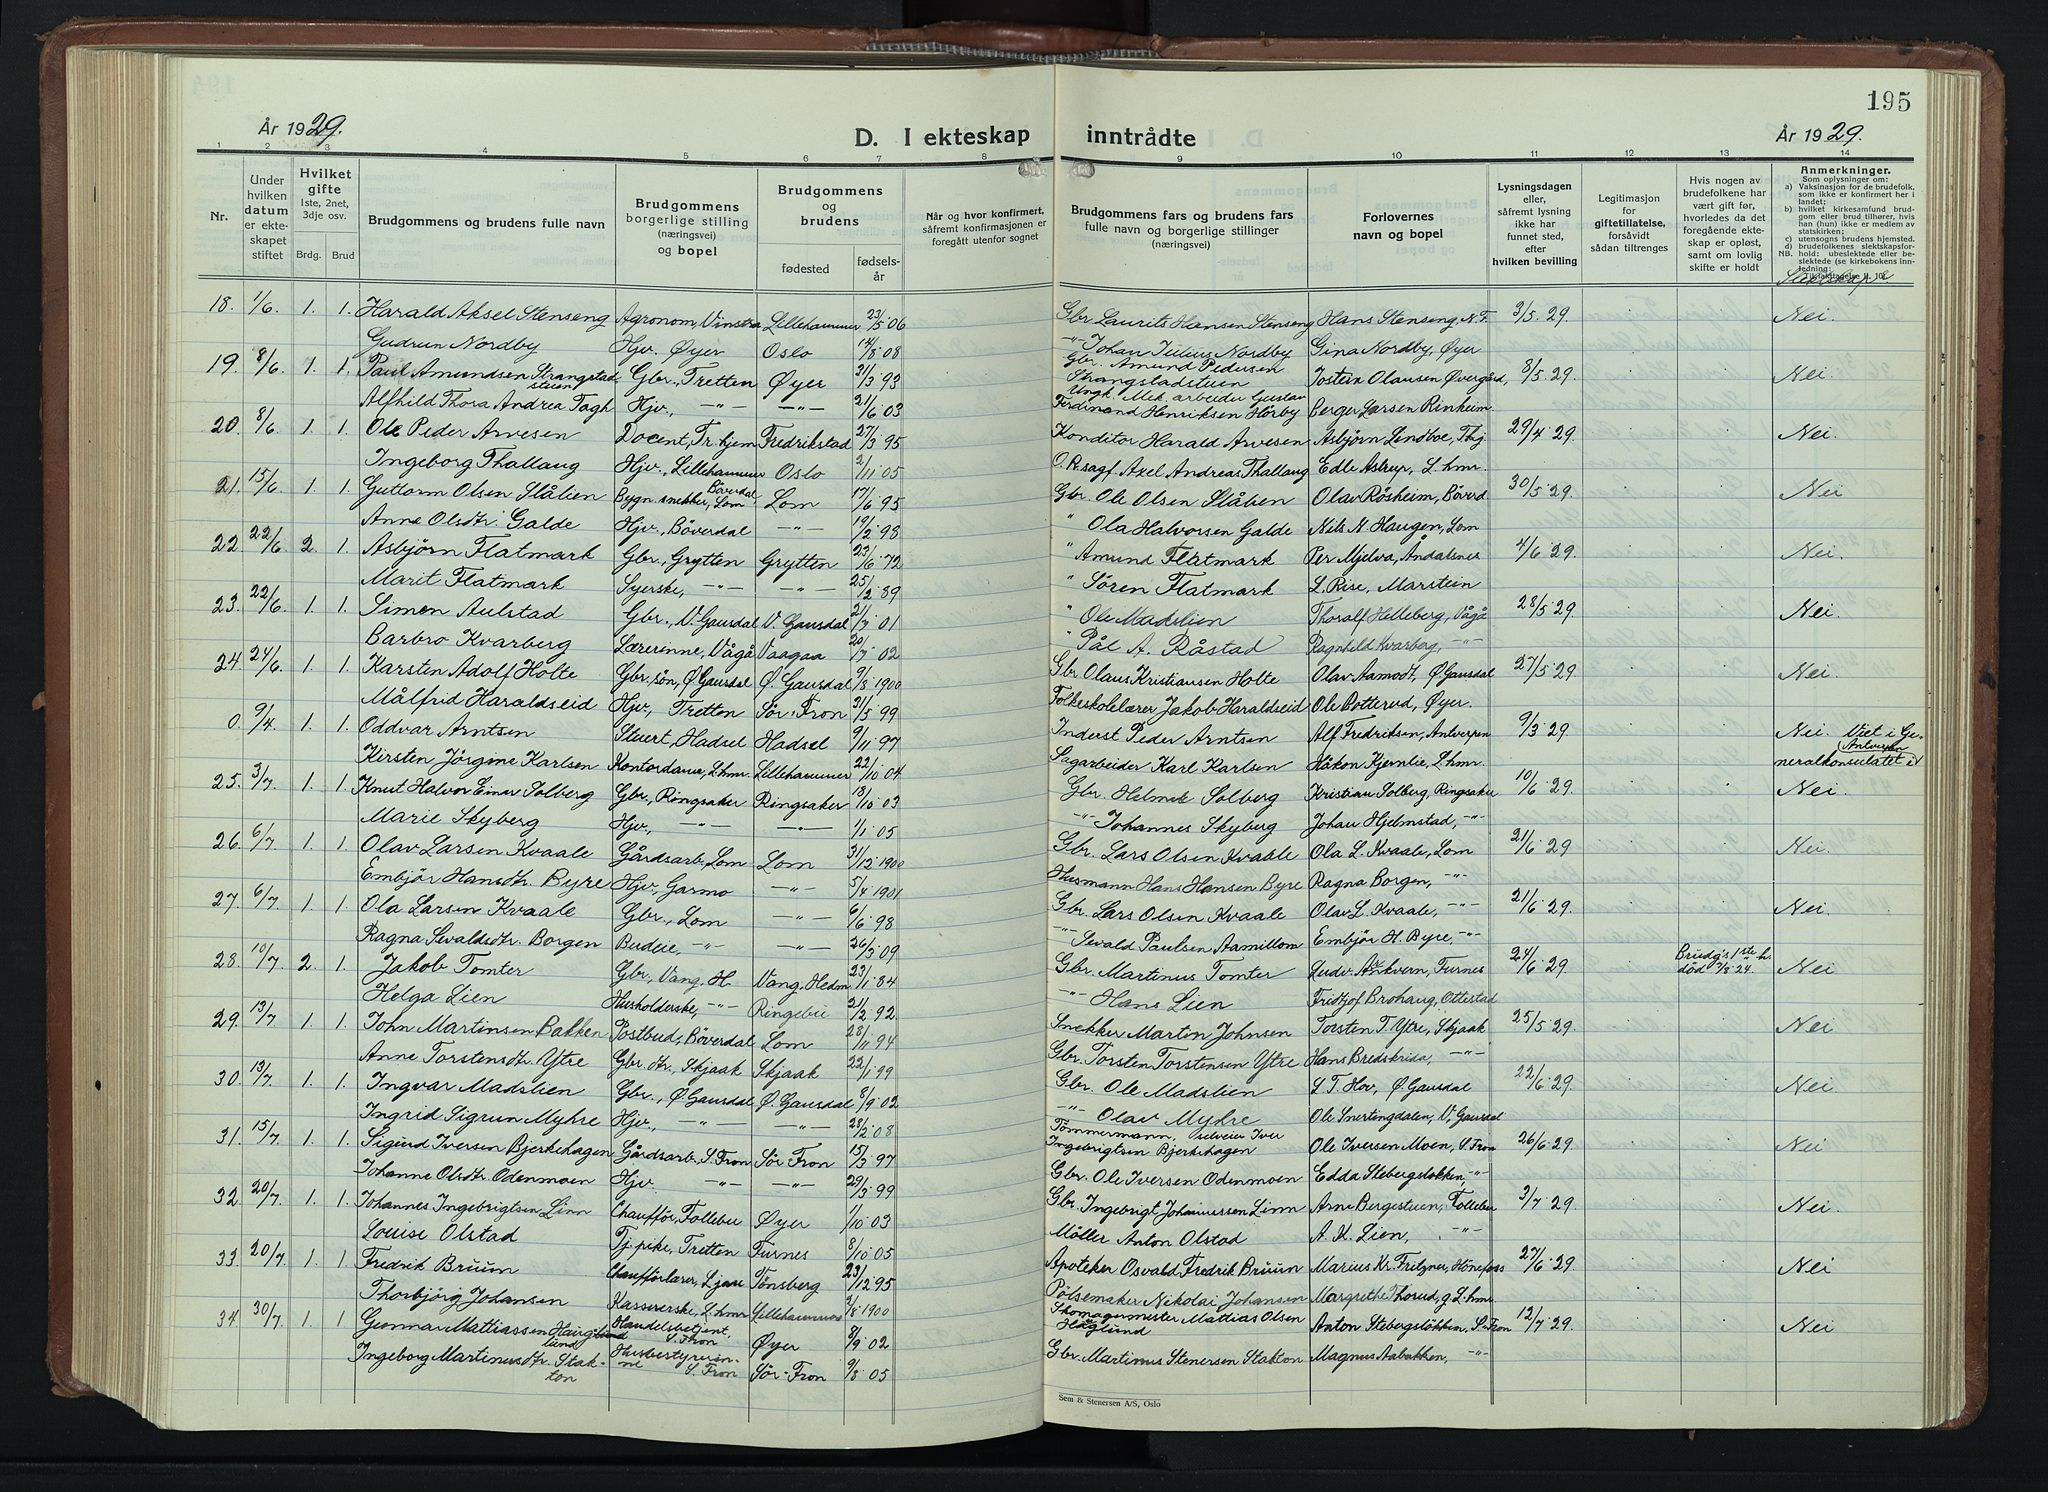 195
År 1929.
D. I ekteskap inntrådte
År 1929.
1 2 3 4 5 6 7 8 9 10 11 12 13 14
Nr.
Under hvilken datum er ekteskapet stiftet
Hvilket gifte 1ste, 2net, 3dje osv.
Brdg. Brud
Brudgommens og brudens fulle navn
Brudgommens borgerlige stilling (næringsvei) og bopel
Brudgommens og brudens
fødested
fødselsår
Når og hvor konfirmert, såfremt konfirmasjonen er foregått utenfor sognet
Brudgommens fars og brudens fars fulle navn og borgerlige stillinger (næringsvei)
Forlovernes navn og bopel
Lysningsdagen eller, såfremt lysning ikke har funnet sted, efter hvilken bevilling
Legitimasjon for giftetillatelse, forsåvidt sådan tiltrenges
Hvis nogen av brudefolkene har vært gift før, hvorledes da det foregående ekteskap er opløst, samt om lovlig skifte er holdt
Anmerkninger.
Som oplysninger om:
a) Vaksinasjon for de brudefolk, som ikke er konfirmert her i landet;
b) hvilket kirkesamfund brudgom eller brud tilhører, hvis han (hun) ikke er medlem av statskirken;
c) utensogns brudens hjemsted.
d) brudefolkenes slektskapsforhold: ubeslektede eller beslektede (se kirkebokens innledning:
NB.
Slektskap
18. 1/6 1. 1. Harald Aksel Stenseng Agronom, Vinstra Lillehammer 23/5 06 Gbr. Laurits Hansen Stenseng Hans Stenseng, N.F. 3/5. 29. Nei.
Gudrun Nordby Hjv. Øyer Oslo 14/8 08 -"- Johan Julius Nordby Gina Nordby, Øyer
19. 8/6 1. 1. Paul Amundsen Strangstadstuen Gbr., Tretten Øyer 21/3 93 Gbr. Amund Pedersen Strangstadstuen Jostein Olausen Øvergård, 8/5. 29. Nei.
Alfhild Thora Andrea Fagh Hjv., -"- -"- 21/6 03 Ungk. Mek. arbeider Gustav Ferdinand Henriksen Hörby Berger Larsen Rinheim.
20. 8/6 1. 1. Ole Peder Arvesen Docent, Tr.hjem Fredrikstad 27/3 95 Konditor Harald Arvesen Asbjørn Lindboe, Thj. 29/4 29. Nei.
Ingeborg Thallaug Hjv., Lillehammer Oslo 2/11 05 O.R.sagf. Axel Andreas Thallaug Edle Astrup, L.hmr.
21. 15/6 1. 1. Guttorm Olsen Slålien Bygn.snekker, Böverdal Lom Lom 17/6 95 Gbr. Ole Olsen Slålien Olav Røsheim, Böverd. 30/5 29. Nei
Anne Olsdtr. Galde Hjv., Böverdal -"- 19/2 98 " Ola Halvorsen Galde Nils N. Haugen, Lom
22. 22/6 2. 1. Asbjørn Flatmark Gbr., Grytten Grytten 23/6 72 " Amund Flatmark Per Mjelva, Åndalsnes 4/6 29. Nei.
Marit Flatmark Syerske, -"- -"- 25/2 89 " Sören Flatmark L. Rise, Marstein
23. 22/6 1. 1. Simen Aulstad Gbr., V. Gausdal V. Gausdal 21/7 01 " Ole Madslien Thoralf Helleberg, Vågå 28/5 29. Nei.
Barbro Kvarberg Lærerinne, Vågå Vaagaa 20/7 02 " Pål A. Råstad Ragnhild Kvarberg, -"-
24. 24/6 1. 1. Karsten Adolf Holte Gbr. sön, Ø. Gausdal Ø. Gausdal 9/8 1900 Gbr. Olaus Kristiansen Holte Olav Aamodt, Ø. Gausdal 27/5 29. Nei.
Målfrid Haraldseid Hjv, Tretten Sör-Fron 31/5 99 Folkeskolelærer Jakob Haraldseid Ole Botterud, Øyer.
0. 9/4 1. 1. Oddvar Arntsen Stuert, Hadsel Hadsel 9/11 97 Inderst Peder Arntsen Alf Fredriksen, Antverpen 9/3 29 Nei. Viet i Generalkonsulatet i Antverpen
Kirsten Jörgine Karlsen Kontordame, L.hmr. Lillehammer 22/10 04 Sagarbeider Karl Karlsen Håkon Kjernlie, L.hmr.
25. 3/7 1. 1. Knut Halvor Einar Solberg Gbr., Ringsaker Ringsaker 18/10 03 Gbr. Helmik Solberg Kristian Solberg, Ringsaker 10/6 29. Nei.
Marie Skyberg Hjv, -"- -"- 1/1 05 -"- Johannes Skyberg Johan Hjelmstad, -"-
26. 6/7 1. 1. Olav Larsen Kvaale Gårdsarb., Lom Lom 31/12 1900 Gbr. Lars Olsen Kvaale Ola L. Kvaale, Lom 21/6 29 Nei.
Embjör Hansdtr. Byre Hjv., Garmo -"- 5/4 1901 Husmann Hans Hansen Byre Ragna Borgen, -"-
27. 6/7 1. 1. Ola Larsen Kvaale Gbr., Lom -"- 6/6 98 Gbr. Lars Olsen Kvaale Olav L. Kvaale, -"- 21/6 29. Nei.
Ragna Sevaldsdtr. Borgen Budeie, -"- -"- 26/3 09 -"- Sevald Paulsen Aamillom Embjör H. Byre, -"-
28. 10/7 2. 1. Jakob Tomter Gbr., Vang, H. Vang, Hedm. 23/1 84 Gbr. Martinus Tomter Ludv. Ankvern, Furnes 24/6 29 Brudg's 1ste h. död 7/8 24. Nei
Helga Lien Husholderske, -"- Ringebu 21/2 92. -"- Hans Lien Fridtjof Brohaug, Ottestad
29. 13/7 1. 1. John Martinsen Bakken Postbud, Böverdal Lom 28/11 94 Snekker Marton Johnsen Torsten T. Ytre, Skjaak 25/5 29. Nei
Anne Torstensdtr. Ytre Gbr.dtr., Skjaak Skjaak 22/1 99 Gbr. Torsten Torstensen Ytre Hans Bredskrida, -"-
30. 13/7 1. 1. Ingvar Madslien Gbr., Ø. Gausdal Ø. Gausdal 8/9 02 Gbr. Ole Madslien L T. Hov, Ø. Gausdal 22/6 29. Nei
Ingrid Sigrun Myhre Hjv., -"- -"- 28/2 08 -"- Olav Myhre Ole Snertingdalen, V. Gausdal
31. 15/7 1. 1. Sigurd Iversen Bjerkehagen Gårdsarb., S. Fron Sör Fron 15/3 97 Tömmermann, selveier Iver Ingebrigtsen Bjerkehagen Ole Iversen Moen, S. Fron 26/6 29. Nei
Johanne Olsdtr Odenmoen Hjv. -"- -"- 29/3 99 Gbr. Ole Iversen Odenmoen Edda Stebergslökken, -"-
32. 20/7 1. 1. Johannes Ingebrigtsen Linn Chaufför, Follebu Øyer 1/10 03 Gbr. Ingebrigt Johannessen Linn Arne Bergestuen, Follebu 3/7 29. Nei.
Louise Olstad Tj.pike, Tretten Furnes 8/10 05 Möller Anton Olstad A. K. Lien, -"-
33. 20/7 1. 1. Fredrik Bruun Chaufförlærer, Ljan Tönsberg 23/12 95 Apoteker Osvald Fredrik Bruun Marius Kr. Fritzner, Hönefoss 27/6 29. Nei
Thorbjörg Johansen Kassererske, L.hmr Lillehammer 3/8 1900 Pölsemaker Nikolai Johansen Margrethe Thorud, g. L.hmr.
34. 30/7 1. 1. Gunnar Mathiassen Haugslund Handelsbetjent, S. Fron Øyer 8/9 02 Skomagermester Mathias Olsen Höglund Anton Stebergslökken, S. Fron 12/7 29. Nei
Ingeborg Martinusdtr. Stakton Husbestyrerinne S. Fron Sör-Fron 9/8 05 Gbr. Martinus Stenersen Stakton Magnus Aabakken, -"-
Sem & Stenersen A/S, Oslo